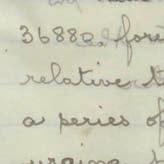 36880. fore
relative t
a series of